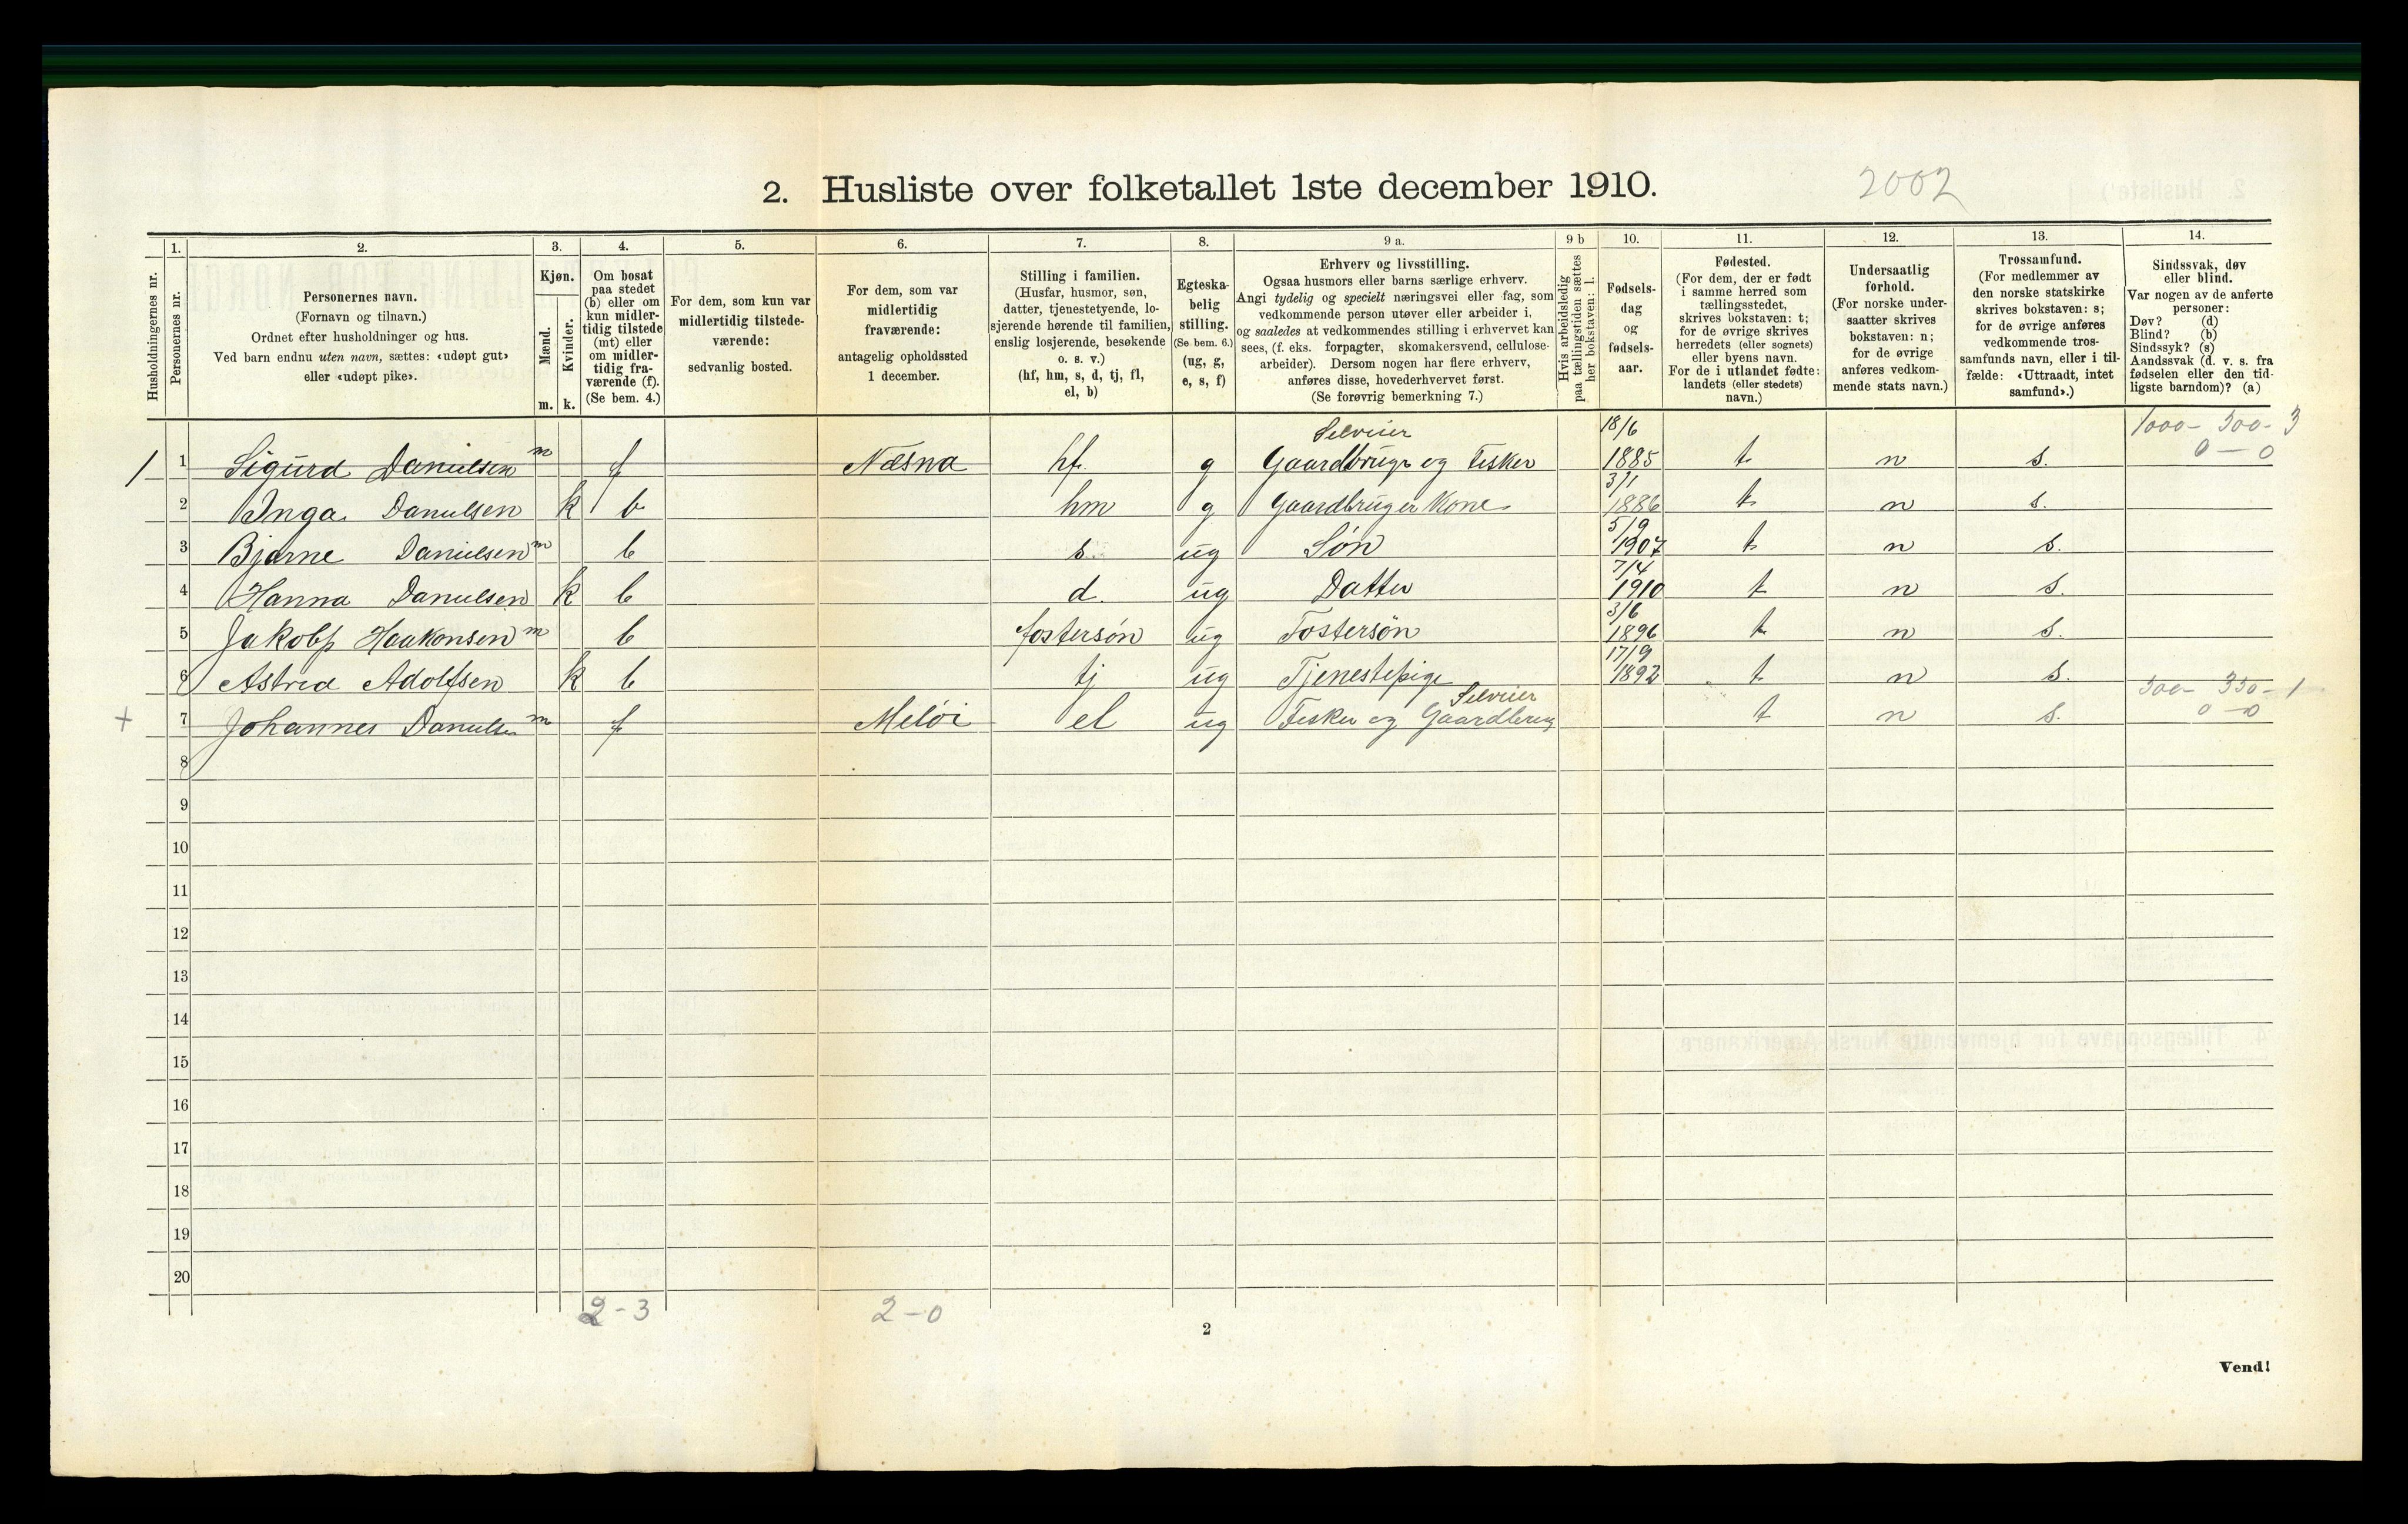 2. Husliste over folketallet 1ste december 1910.
2002
1. 2. 3. 4. 5. 6. 7. 8. 9 a. 9 b 10. 11. 12. 13. 14.
Husholdningernes nr.
Personernes nr.
Personernes navn.
(Fornavn og tilnavn.)
Ordnet efter husholdninger og hus.
Ved barn endnu uten navn, sættes: «udøpt gut»
eller «udøpt pike».
Kjøn.
Mænd.
Kvinder.
m. k.
Om bosat
paa stedet
(b) eller om
kun midler-
tidig tilstede
(mt) eller
om midler-
tidig fra-
værende (f).
(Se bem. 4.)
For dem, som kun var
midlertidig tilstede-
værende:
sedvanlig bosted.
For dem, som var
midlertidig
fraværende:
antagelig opholdssted
1 december.
Stilling i familien.
(Husfar, husmor, søn,
datter, tjenestetyende, lo-
sjerende hørende til familien,
enslig losjerende, besøkende
o. s. v.)
(hf, hm, s, d, tj, fl,
el, b)
Egteska-
belig
stilling.
(Se bem. 6.)
(ug, g,
e, s, f)
Erhverv og livsstilling.
Ogsaa husmors eller barns særlige erhverv.
Angi tydelig og specielt næringsvei eller fag, som
vedkommende person utøver eller arbeider i,
og saaledes at vedkommendes stilling i erhvervet kan
sees, (f. eks. forpagter, skomakersvend, cellulose-
arbeider). Dersom nogen har flere erhverv,
anføres disse, hovederhvervet først.
(Se forøvrig bemerkning 7.)
Hvis arbeidsledig
paa tællingstiden sættes
her bokstaven: l.
Fødsels-
dag
og
fødsels-
aar.
Fødested.
(For dem, der er født
i samme herred som
tællingsstedet,
skrives bokstaven: t;
for de øvrige skrives
herredets (eller sognets)
eller byens navn.
For de i utlandet fødte:
landets (eller stedets)
navn.)
Undersaatlig
forhold.
(For norske under-
saatter skrives
bokstaven: n;
for de øvrige
anføres vedkom-
mende stats navn.)
Trossamfund.
(For medlemmer av
den norske statskirke
skrives bokstaven: s;
for de øvrige anføres
vedkommende tros-
samfunds navn, eller i til-
fælde: «Uttraadt, intet
samfund».)
Sindssvak, døv
eller blind.
Var nogen av de anførte
personer:
Døv? (d)
Blind? (b)
Sindssyk? (s)
Aandssvak (d. v. s. fra
fødselen eller den tid-
ligste barndom)? (a)
Selveier 18/6 1000- 300- 3
1 1 Sigurd Danielsen m f Næsna hf. g Gaardbruger og Fisker 1885 t n s. 0 - 0
3/1
2 Inga Danielsen k b hm g Gaardbruger Kone 1886 t n s.
5/9
3 Bjarne Danielsen m b s. ug Søn 1907 t n s.
7/4
4 Hanna Danielsen k b d. ug Datter 1910 t n s.
3/6
5 Jakob Haakonsen m b fostersøn ug Fostersøn 1896 t n s.
17/9
6 Astrid Adolfsen k b tj ug Tjenestepige 1892 t n s.
Selveier 300- 350- 1
+ 7 Johannes Danielsen m f Meløi el ug Fisker og Gaardbrug t n s. 0 - 0
8
9
10
11
12
13
14
15
16
17
18
19
20
2 - 3 2 - 0
2
Vend!